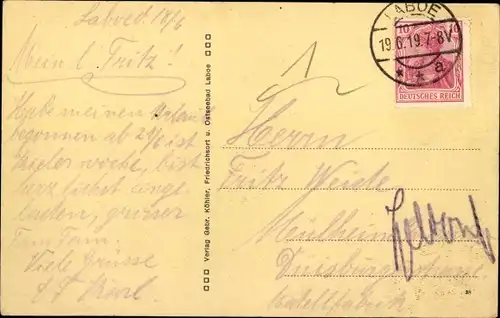 Laboe d. 18/6
Mein l. Fritz!
Habe meinen Urlaub
begonnen ab 24/6 ist
Kieler woche, bist
herzlichst einge-
laden, grosser
Viele Grüsse
Karl
Verlag Gebr. Köhler, Friedrichsort u. Ostseebad Laboe
1
LABOE
19.6.19.7-8V.
* * a
10 10
DEUTSCHES REICH
Herrn
Fritz Weide
Mülheim
Duisburgerstrasse